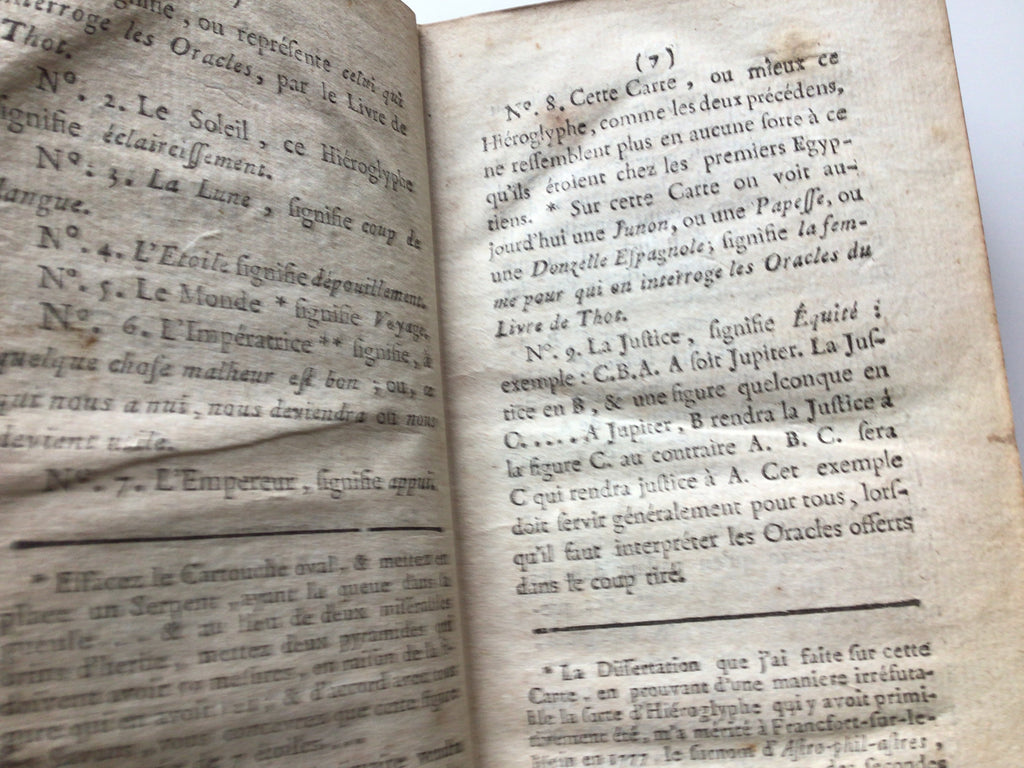 , ou repréſente celui qui
interroge les Oracles, par le Livre de
Thot.
Nº. 2. Le Soleil, ce Hiéroglyphe
ſignifie éclairciſſement.
Nº. 3. La Lune, ſignifie coup de
langue.
Nº. 4. L'Etoile ſignifie dépouillement.
Nº. 5. Le Monde * ſignifie Voyage.
Nº. 6. L'Impératrice ** ſignifie, à
quelque choſe malheur eſt bon; ou, ce
qui nous a nui, nous deviendra ou nous
devient utile.
Nº. 7. L'Empereur, ſignifie appui.
* Effacez le Cartouche oval, & mettez en
place un Serpent ayant la queue dans la
gueule & au lieu de deux miſérables
mettez deux pyramides qui
doivent avoir meſures, en raiſon de la
& d'accord avec
que cette figure
(7)
Nº. 8. Cette Carte, ou mieux ce
Hiéroglyphe, comme les deux précédens,
ne reſſemblent plus en aucune ſorte à ce
qu'ils étoient chez les premiers Egyp-
tiens. * Sur cette Carte on voit au-
jourd'hui une Junon, ou une Papeſſe, ou
une Donzelle Eſpagnole; ſignifie la fem-
me pour qui on interroge les Oracles du
Livre de Thot.
Nº. 9. La Juſtice, ſignifie Équité :
exemple : C.B.A. A ſoit Jupiter. La Juſ-
tice en B, & une figure quelconque en
C..... A Jupiter, B rendra la Juſtice à
la figure C. au contraire A. B. C. ſera
C qui rendra juſtice à A. Cet exemple
doit ſervir généralement pour tous, lorſ-
qu'il faut interpréter les Oracles offerts
dans le coup tiré.
* La Diſſertation que j'ai faite ſur cette
Carte, en prouvant d'une maniere irréfuta-
ble la ſorte d'Hiéroglyphe qui y avoit primi-
tivement été, m'a mérité à Francfort-ſur-le-
Mein en 1777, le ſurnom d'Aſtro-phil-aſtres,
des ſecondes